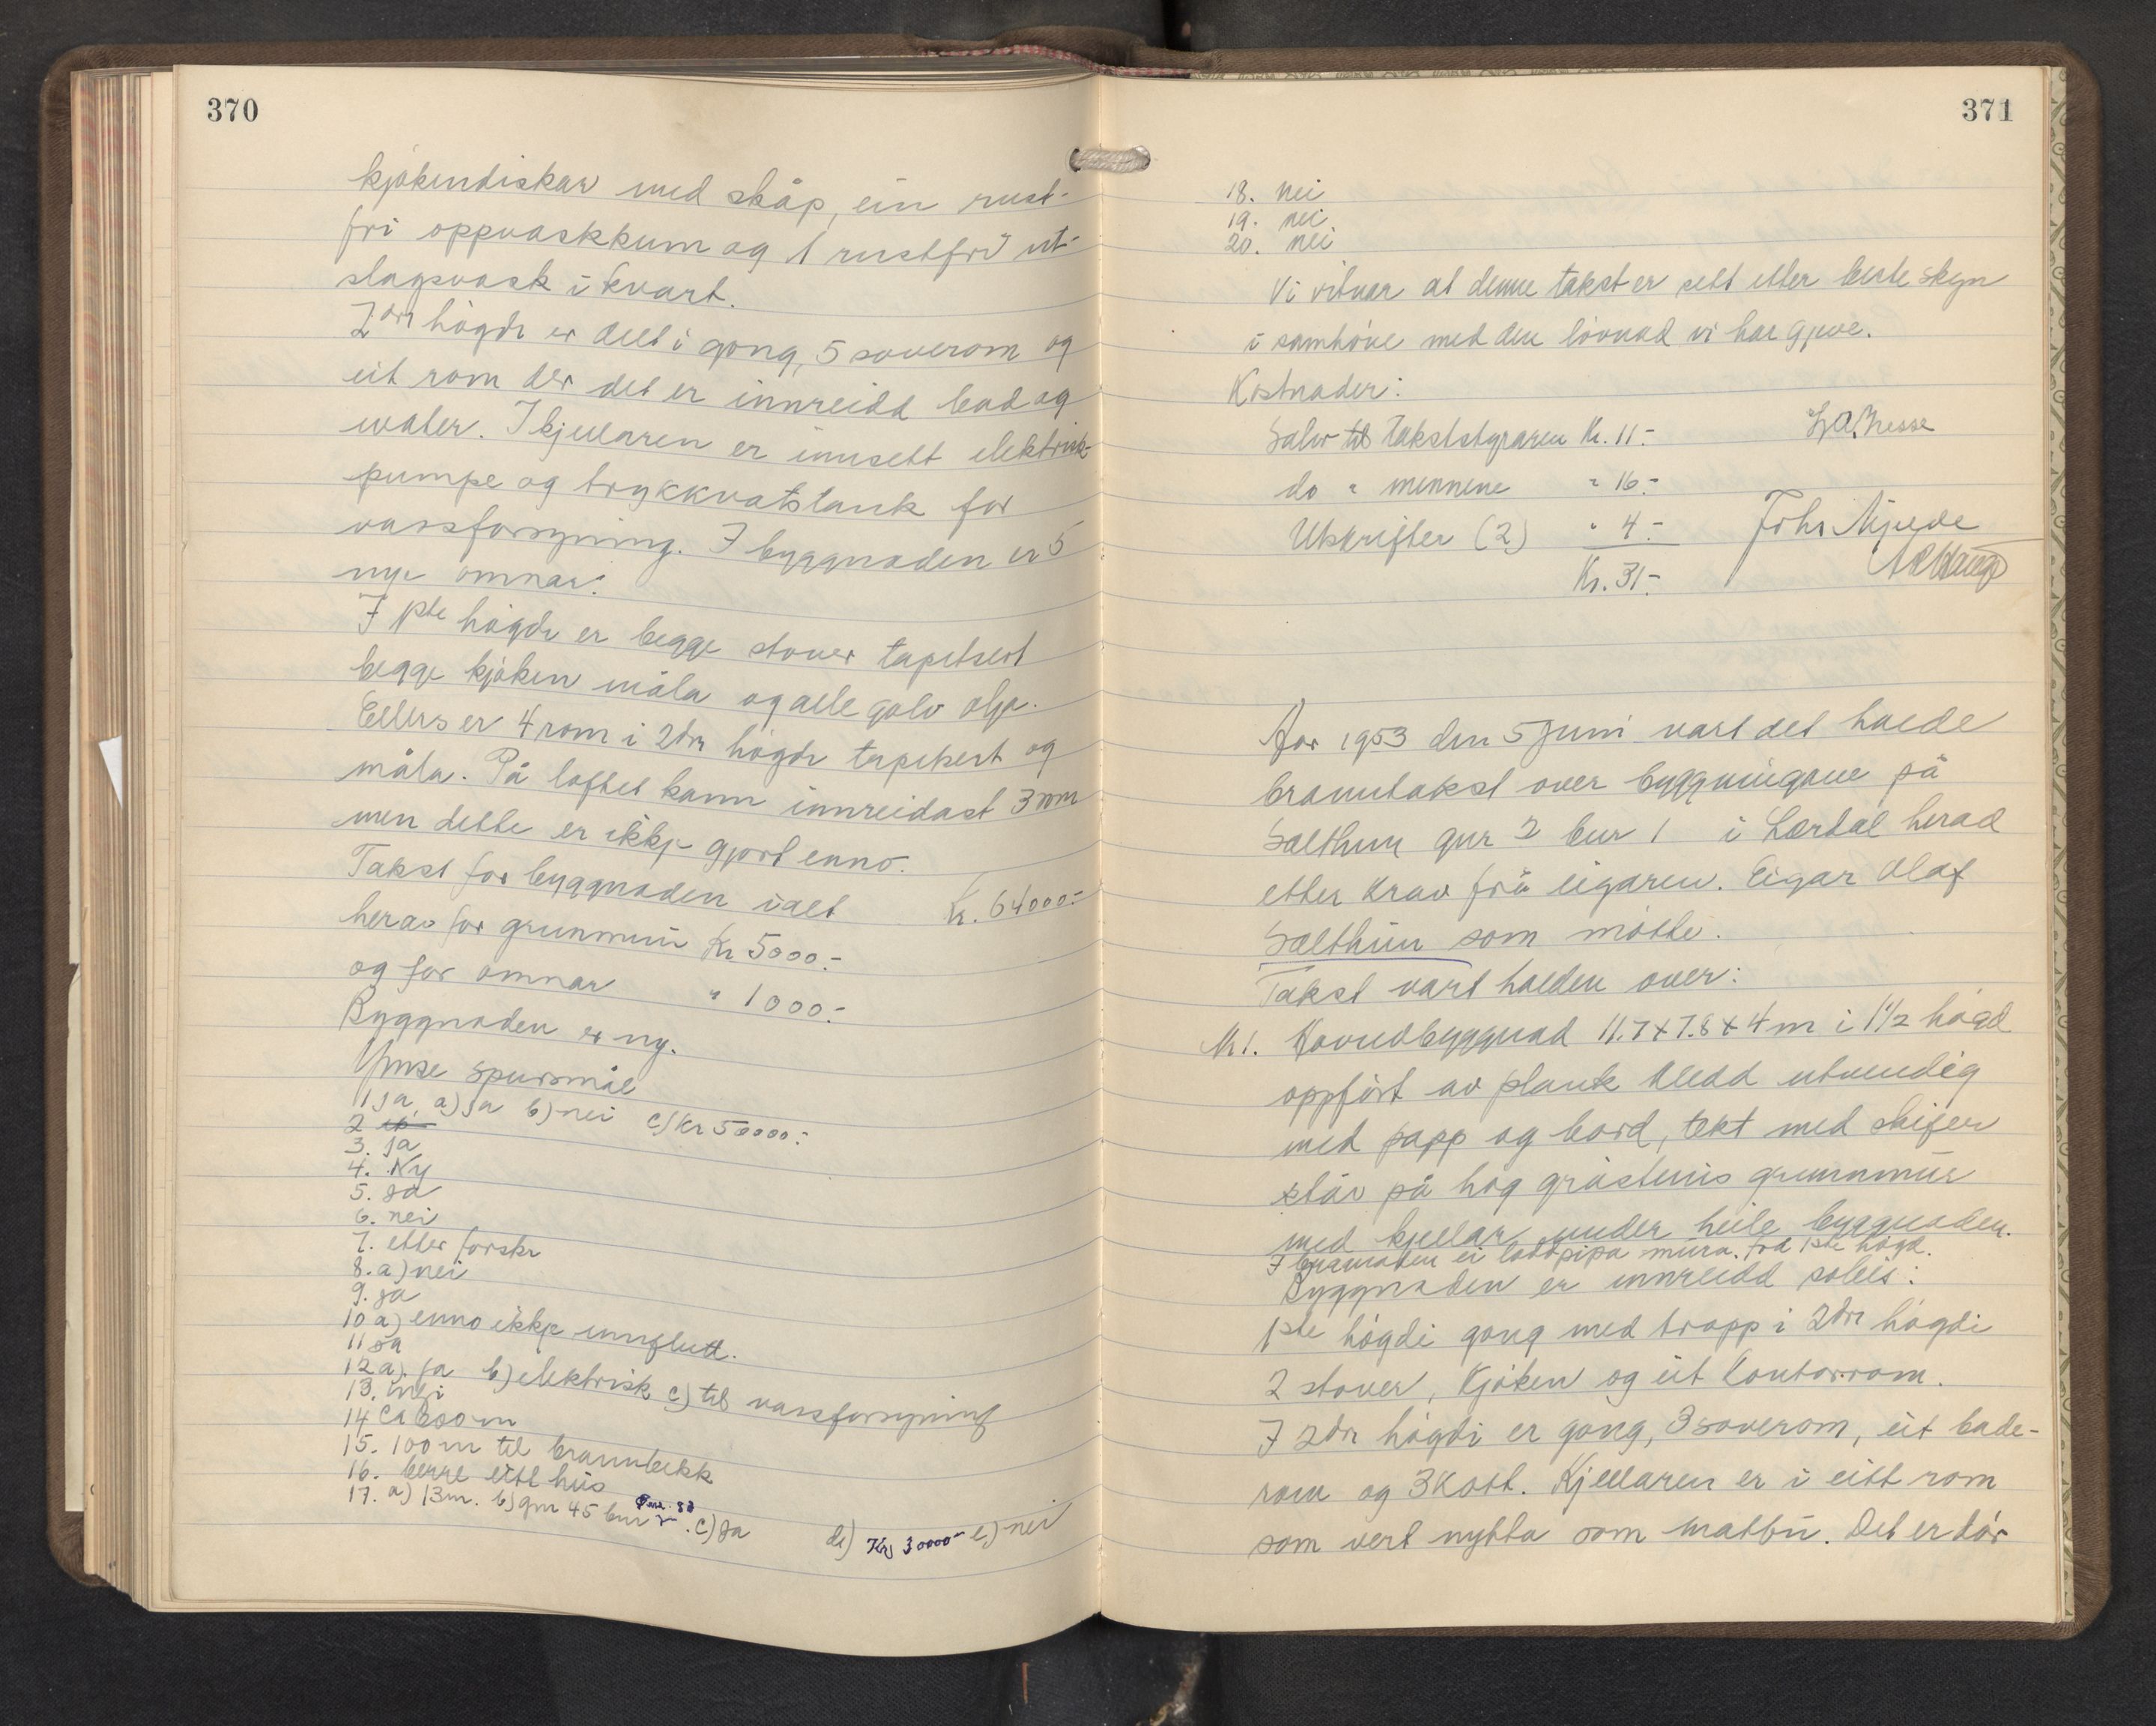 370
kjøkendiskar med skåp, ein rust-
fri oppvaskkum og 1 rustfri ut-
slagsvask i kvart.
2dre høgde er delt i gong, 5 soverom og
eit rom der det er innreidd bad og
water. I kjellaren er innsett elektrisk
pumpe og trykkvatstank for
vassforsyning. I byggnaden er 5
nye omnar.
I 1ste høgde er begge stover tapetsert
begge kjøken måla og alle golv olja.
Ellers er 4 rom i 2dre høgde tapetsert og
måla. På loftet kann innreidast 3 rom
men dette er ikkje gjort enno.
Takst for byggnaden ialt Kr. 64000.-
herav for grunnmur Kr 5000.-
og for omnar " 1000.-
Byggnaden er ny.
Ymse spursmål
1 ja a) ja b) nei c) Kr 50000.-
2
3. ja
4. Ny
5. ja
6. nei
7. etter forskr
8. a) nei
9. ja
10 a) enno ikkje innflutt.
11 ja
12 a). ja b) elektrisk c) til vassforsyning
13. nei
14 ca 600 m
15. 100 m til brannbekk
16. berre eitt hus
17. a) 13m. b) gnr 45 bnr . c) ja d) Kr 30000- e) nei
371
18. nei
19. nei
20. nei
Vi vitnar at denne takst er sett etter beste skyn
i samhøve med den lovnad vi har gjeve.
Kostnader:
Salær til takststyraren Kr. 11.-
do " mennene " 16.-
Utskrifter (2) " 4.-
Kr. 31.-
Nesse
Johs
Hauge
Aar 1953 den 5 Juni vart det halde
branntakst over byggningane på
Sælthun gnr 2 bnr 1 i Lærdal herad
etter krav frå eigaren. Eigar Olaf
Sælthun som møtte.
Takst vart halden over:
Nr 1. Hovudbyggnad 11.7 x 7.8 x 4 m i 1 1/2 høgd
oppført av plank kledd utvendig
med papp og bord, tekt med skifer
står på høg gråsteins grunnmur
med kjellar under heile byggnaden.
I byggnaden ei loddpipa mura frå 1ste høgd.
Byggnaden er innreidd soleis:
1ste høgdi gong med tropp i 2dre høgdi
2 stover, kjøken og eit kontorrom.
I 2dre høgdi er gong, 3 soverom, eit bade-
rom og 3 kott. Kjellaren er i eitt rom
som vert nytta som matbu. Det er tør